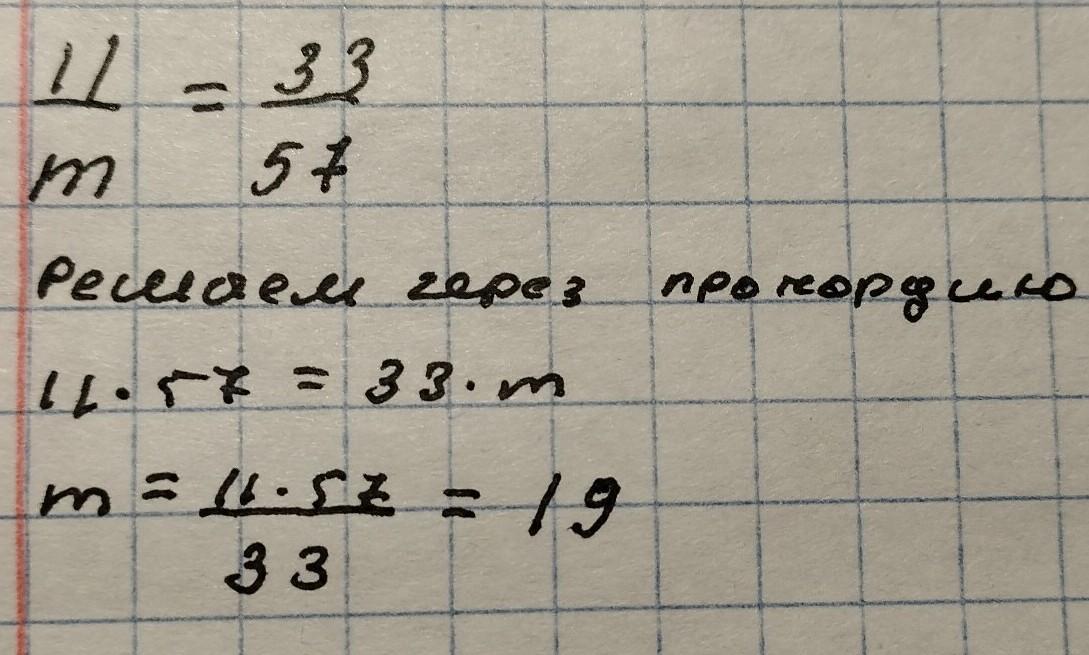 11/m = 33/57
Решаем через пропорцию
11·57 = 33·m
m = 11·57/33 = 19